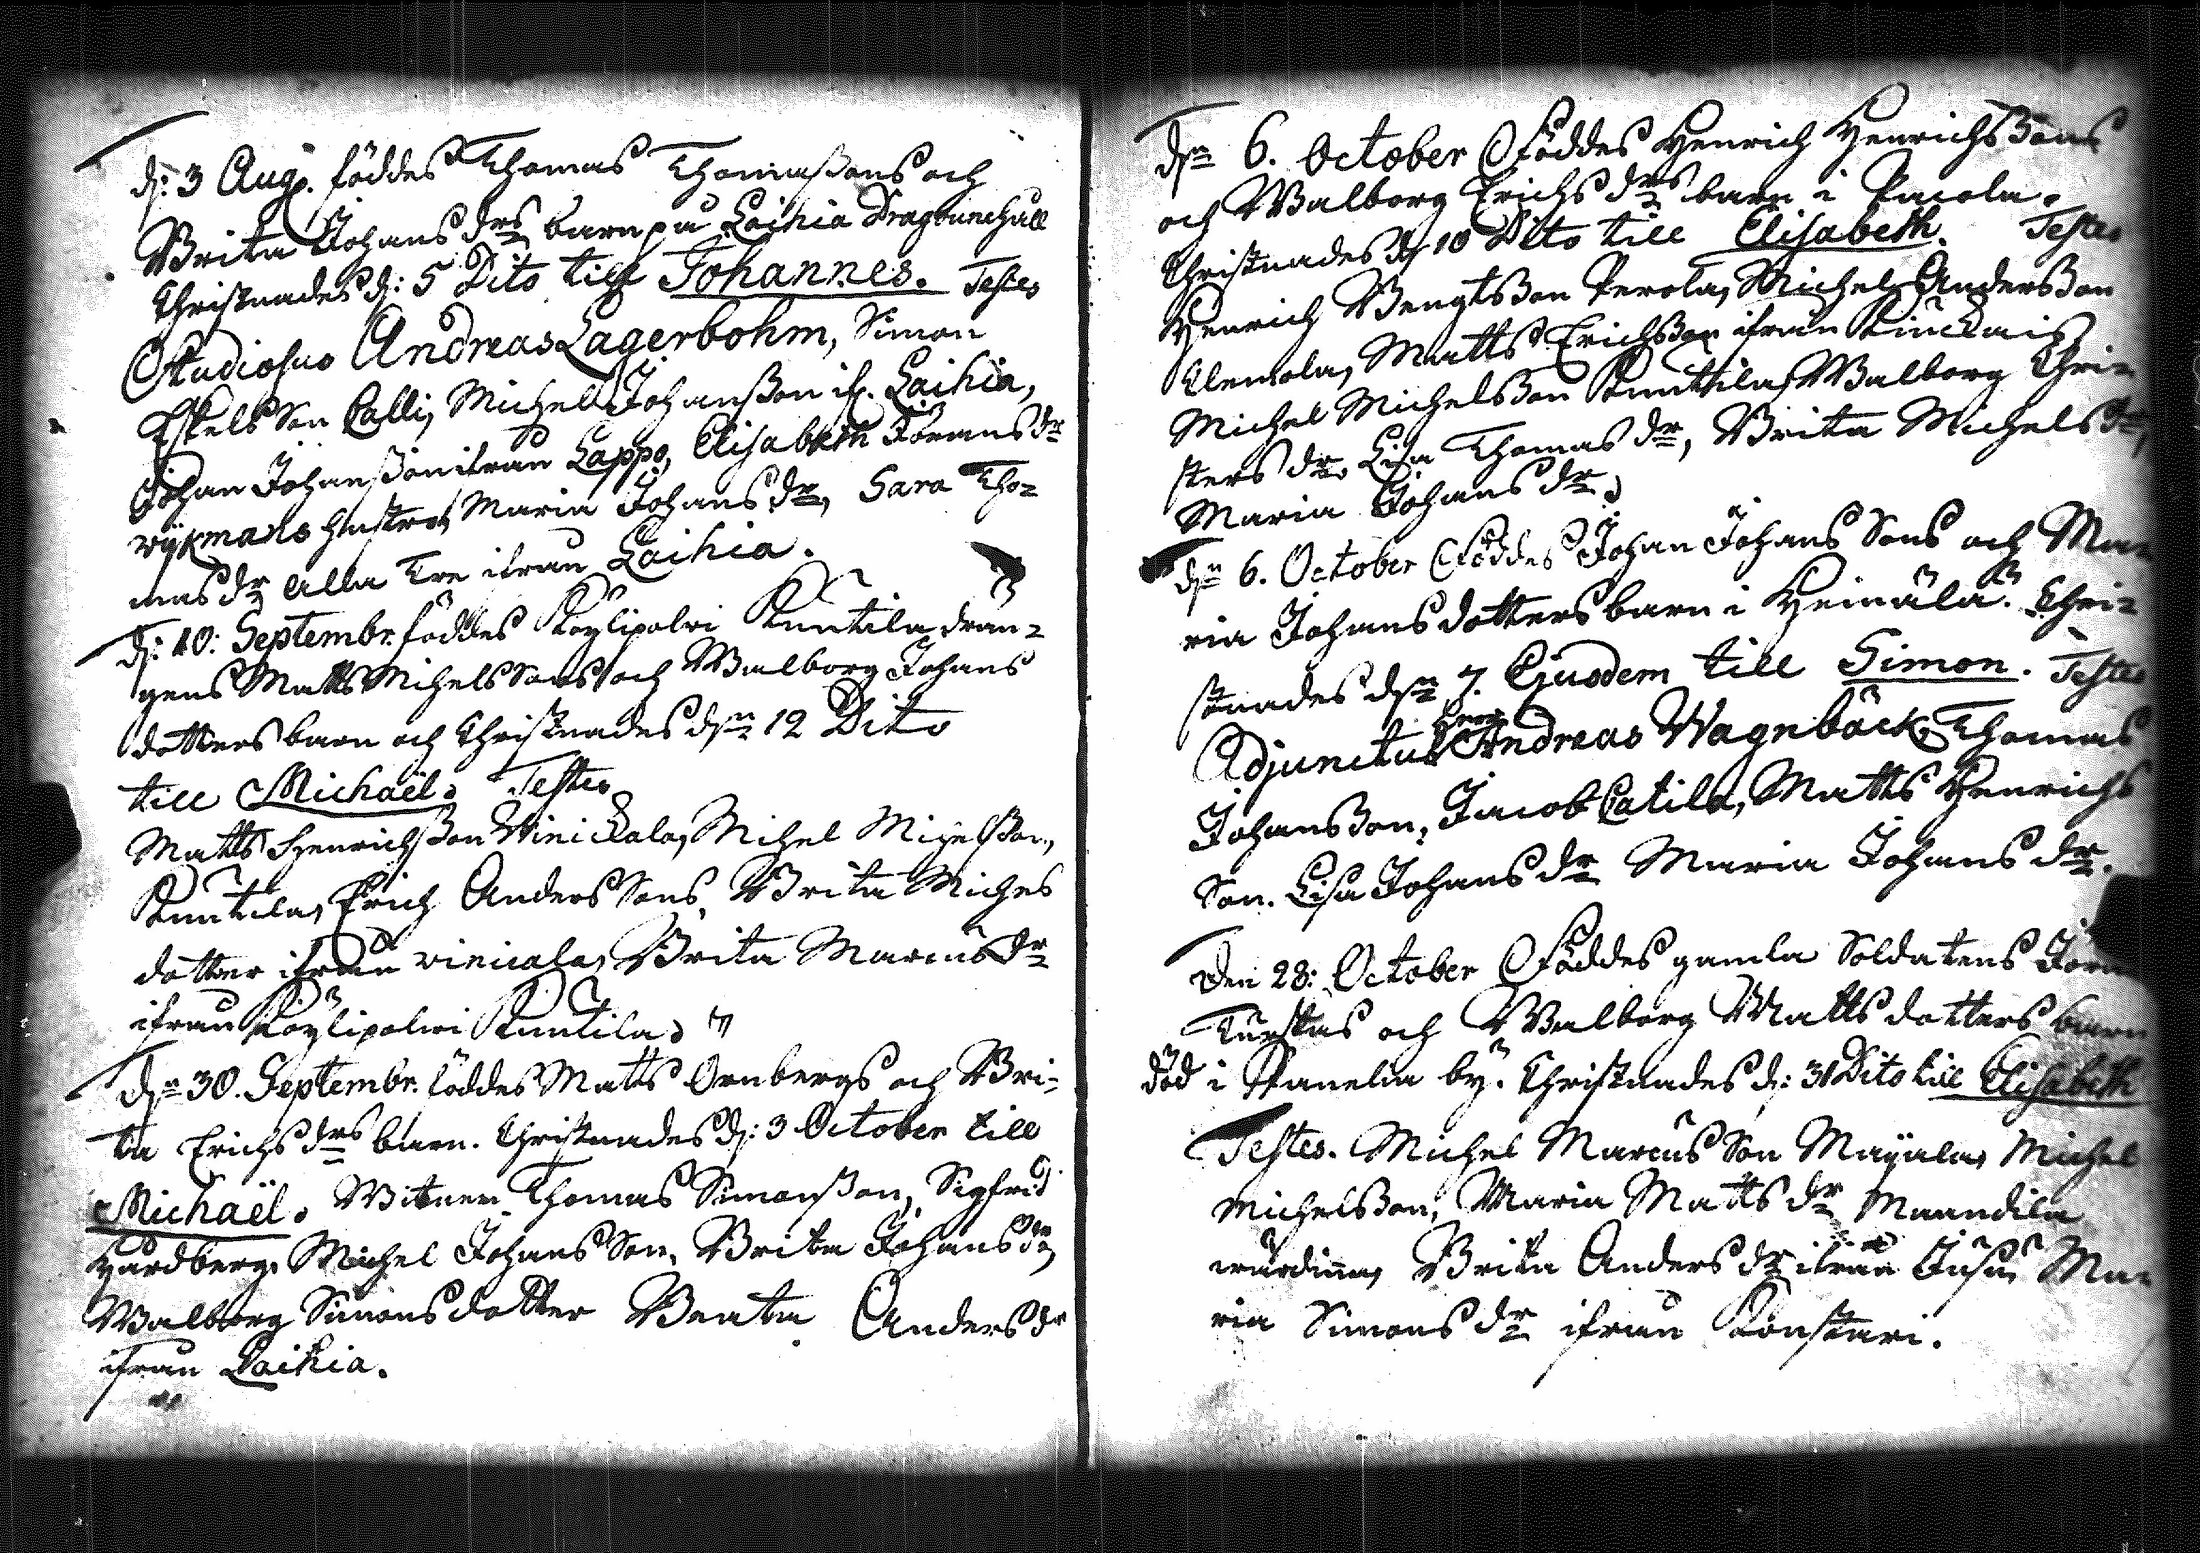 d: 3 Aug. föddes Thomas Thomassons och
Brita Johans drs barn på Laihia Dragounehåll
Christnades d: 5 Dito till Johannes. Testes
Studiosus Andreas Lagerbohm, Simon
Eskels Son Calli, Michel Johansson if. Laihia,
Johan Johansson ifrån Lappo, Elisabeth Jörans dr
rÿkmans hustro, Maria Johans dr, Sara Tho=
mas dr alla tre ifrån Laihia.
d: 10: Septembr. föddes Köylipolvi Kuntila drän=
gens Matts Michels Sons och Walborg Johans
dotters barn och Christnades den 12 Dito
till Michaël. Testes
Matts Henrichsson Vinickala, Michel Michelsson,
Kuntila, Erich Anders Sons, Brita Michels
dotter ifrån vinicala, Brita Marcus dr
ifrån Köylipolvi Kuntila.
dn 30. Septembr. föddes Matts Ornbergs och Bri=
ta Erichs drs barn. Christnades d: 3 October till
Michaël. Witnen Thomas Simonsson, Sigfrid
Hardberg, Michel Johans Son, Brita Johans dr,
Walborg Simons dotter Beata Anders dr
ifrån Laihia.
dn 6. October Föddes Henrich Henrichssons
och Walborg Erichs drs barn i Pacola.
Christnades d 10 Dito till Elisabeth. Testes
Henrich Bengtsson Perola, Michel Andersson
Clemola, Matts Erichsson ifrån
Michel Michelsson Kunttila, Walborg Chri=
sters dr. Lisa Thomas dr, Brita Michels dr,
Maria Johans dr.
dn 6. October Föddes Johan Johans Sons och Ma=
ria Johans dotters barn i Heinälä. Chri=
stnades den 7. Ejusdem till Simon. Testes
Adjunctus Herr Andreas Wagnbäck, Thomas
Johansson, Jacob Catila, Matts Henrichs
Son. Lisa Johans dr Maria Johans dr.
Den 28: October Föddes gamla Soldatens Jöran
Turskas och Walborg Matts dotters barn
död i Panelia by. Christnades d: 31 Dito till Elisabeth
Testes. Michel Marcus Son Mayala, Michel
Michelsson, Maria Matts dr Maandila
wärdinna, Brita Anders dr ifrån Juså, Ma=
ria Simons dr ifrån Konstari.